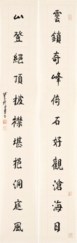 雲鎖奇峰倚石好觀滄海日
山登絕頂披襟堪挹洞庭風